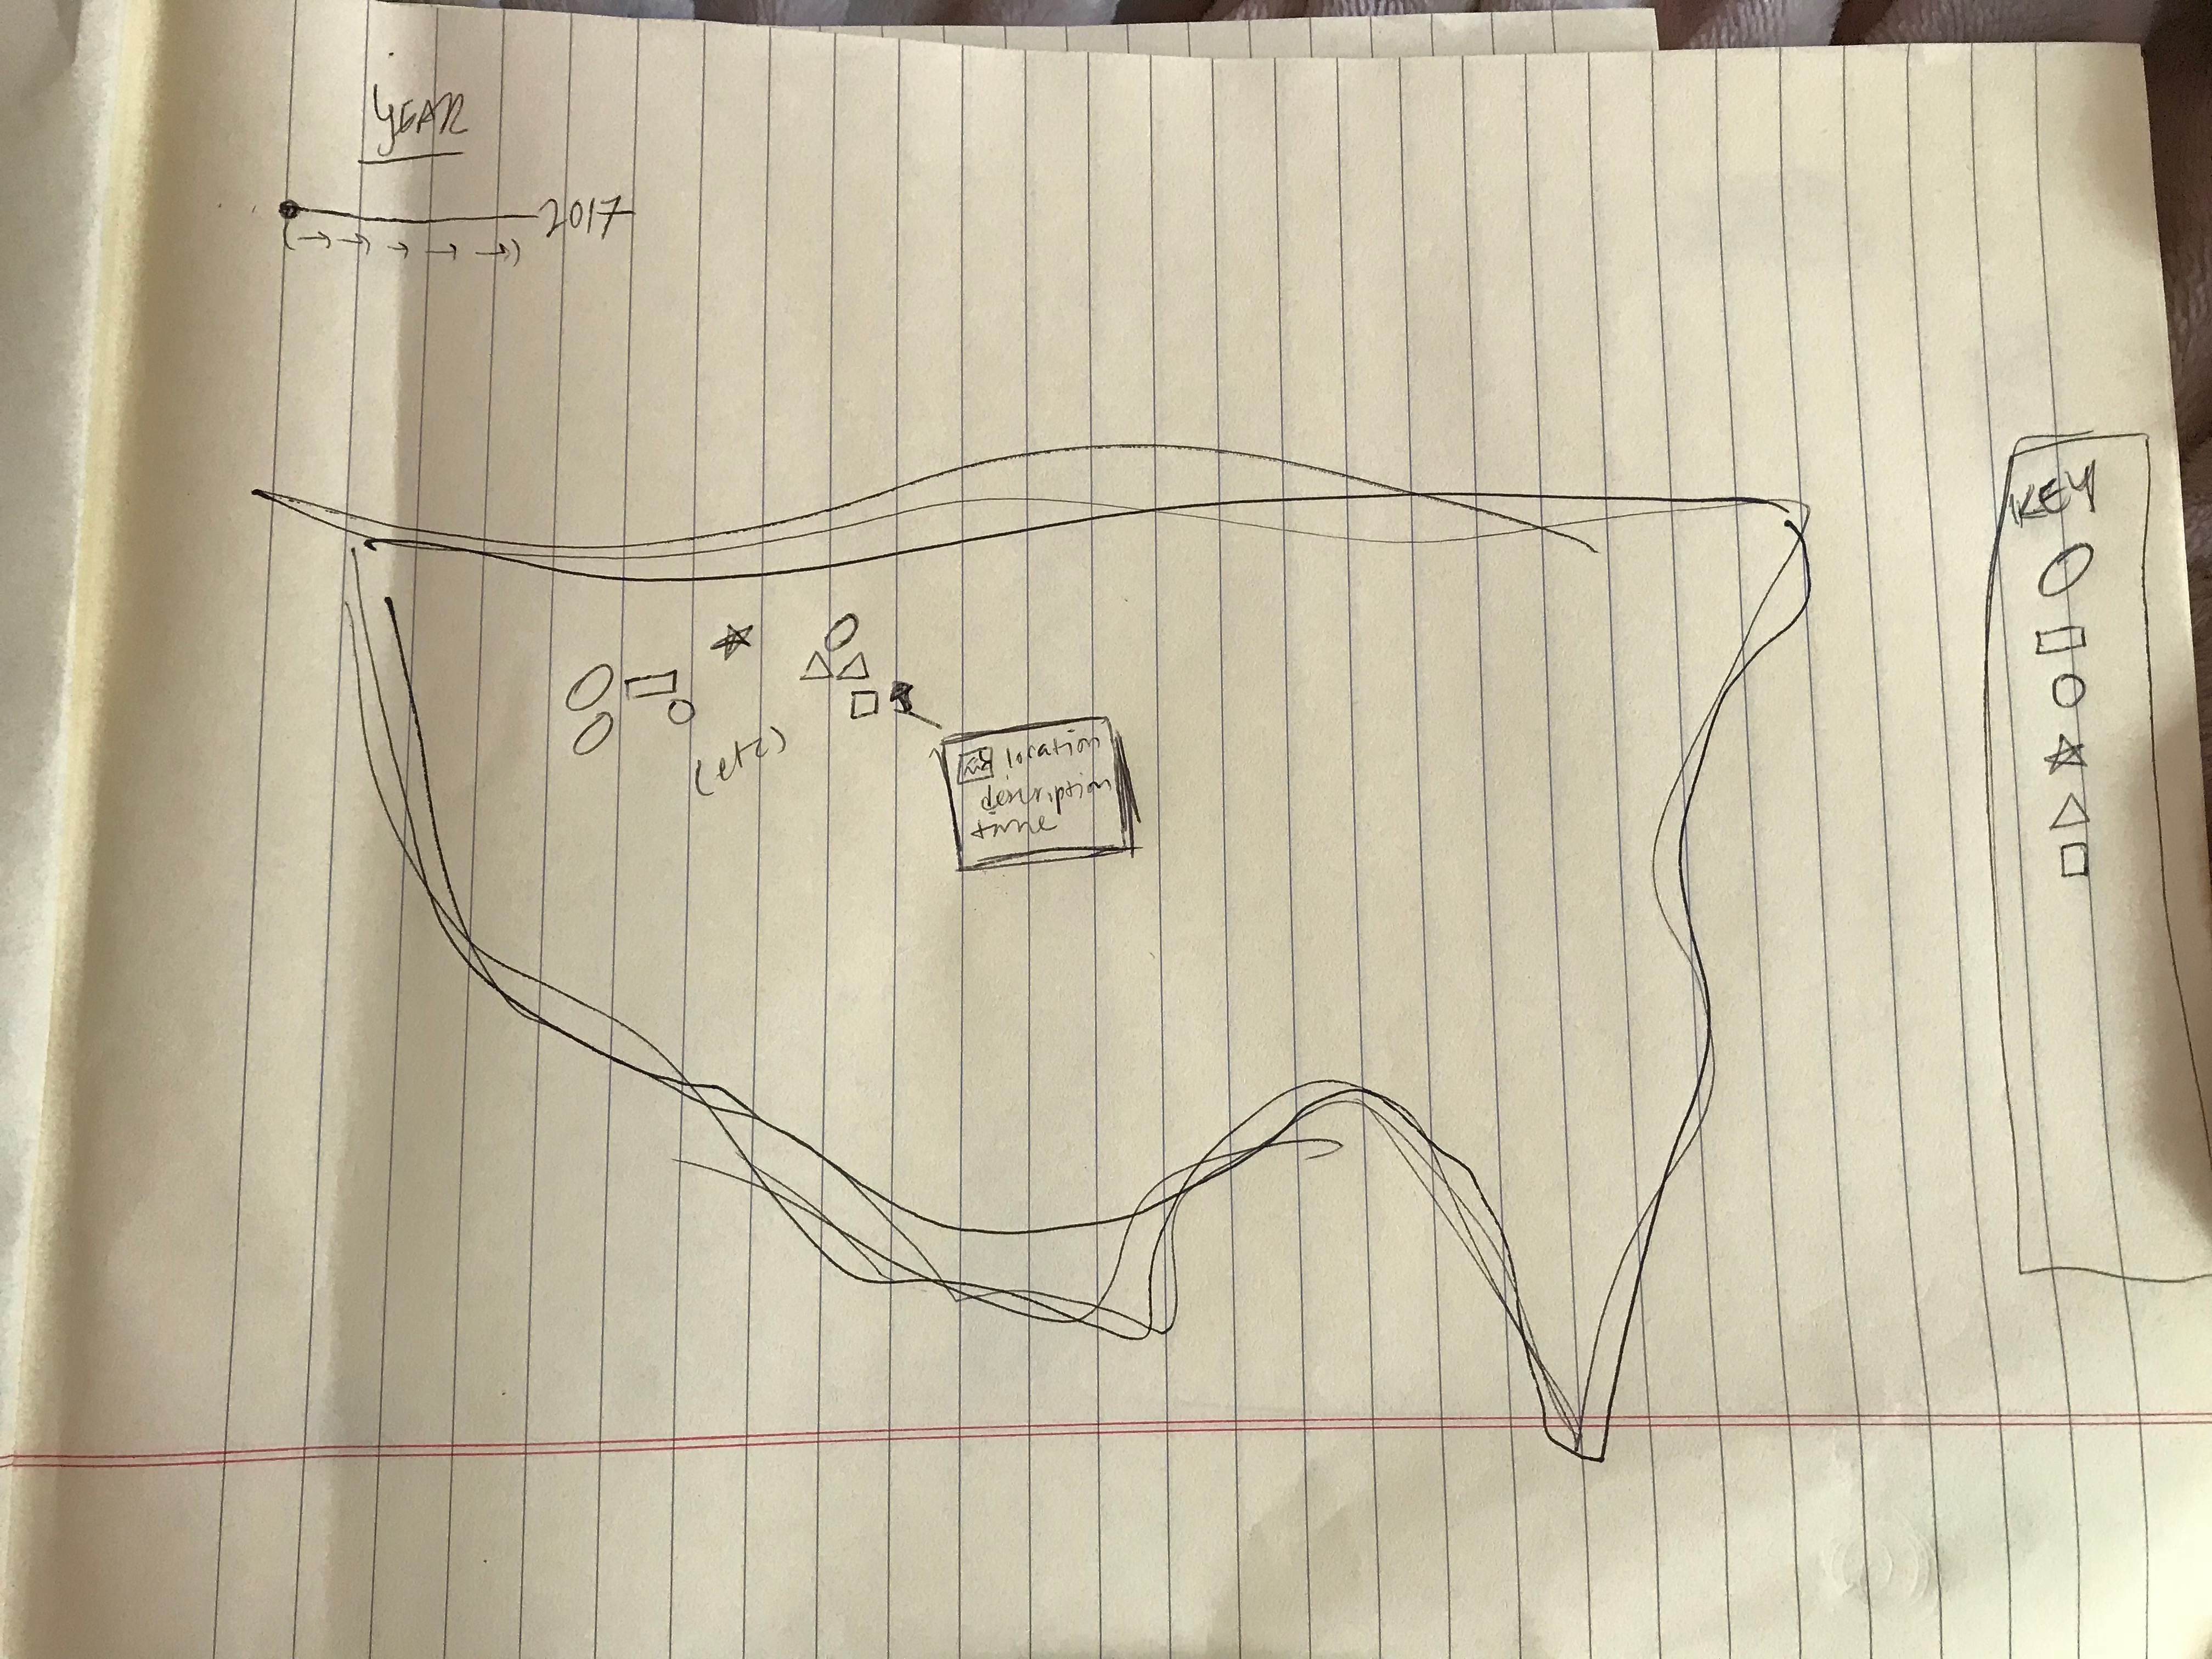 YEAR
2017
KEY
(etc)
location
description
time